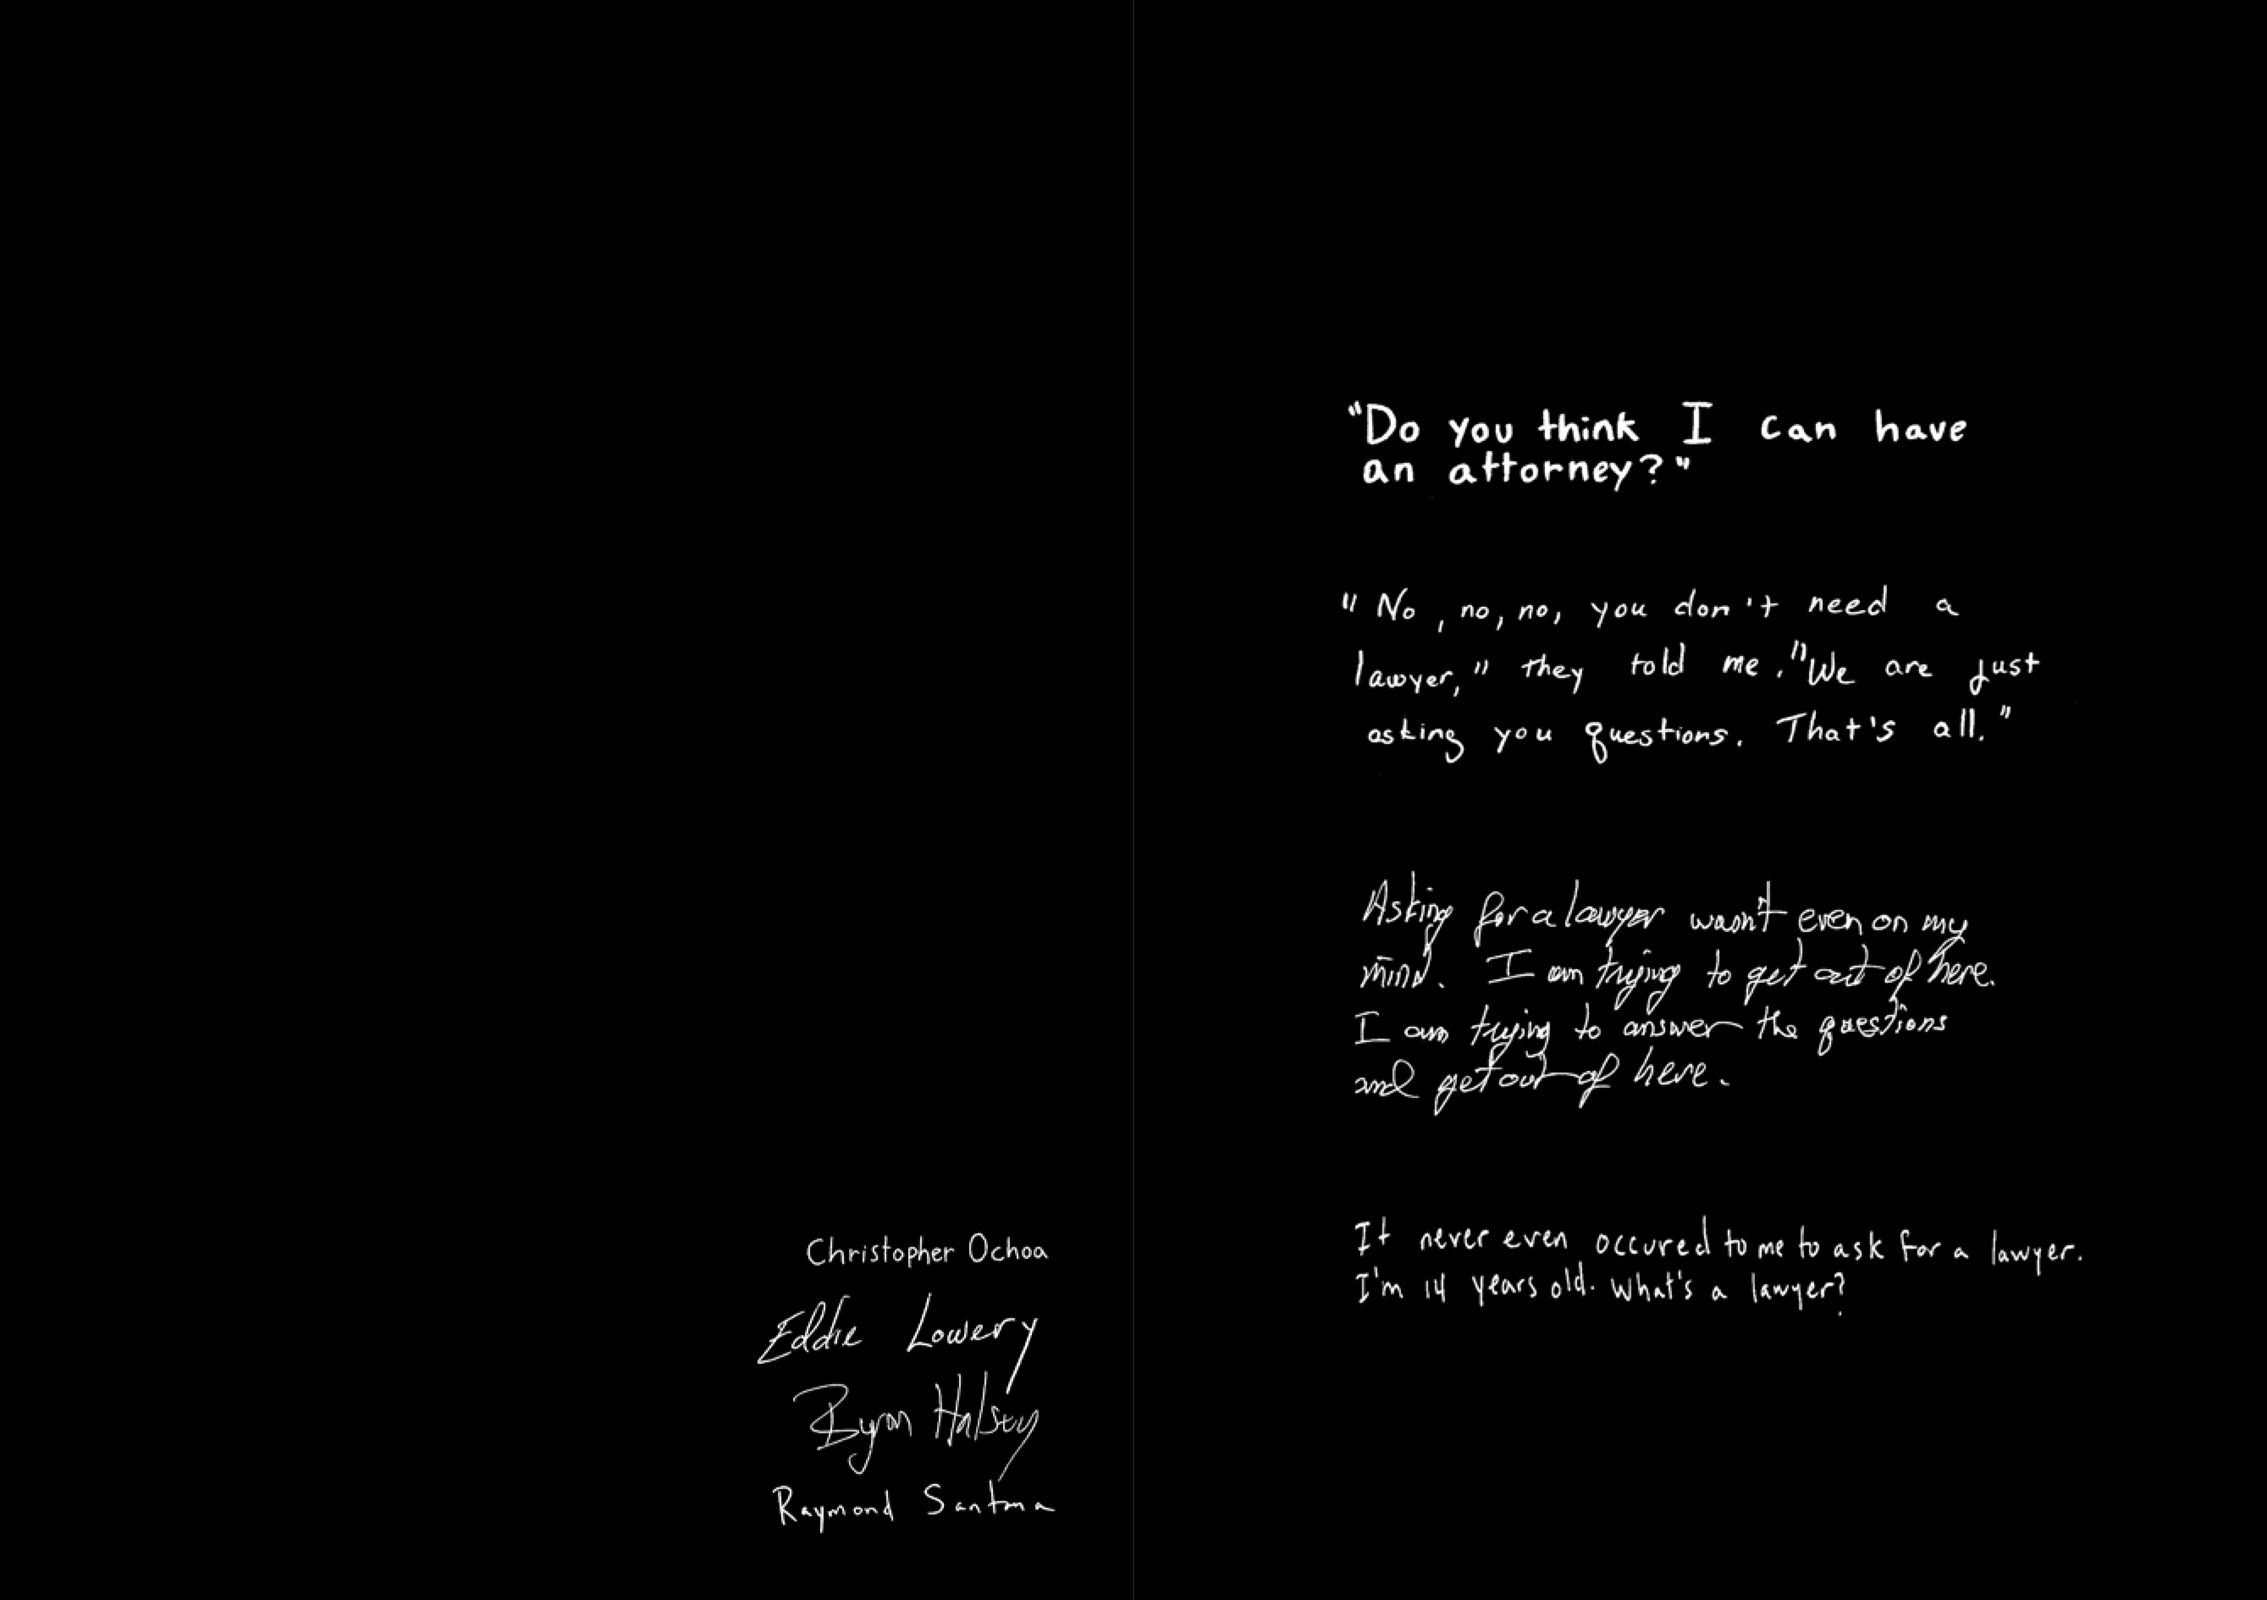 Christopher Ochoa
Eddie Lowery
Byron Halsey
Raymond Santana
"Do you think I can have
an attorney?"
"No, no, no, you don't need a
lawyer," they told me. "We are just
asking you questions. That's all."
Asking for a lawyer wasn't even on my
mind. I am trying to get out of here.
I am trying to answer the questions
and get out of here.
It never even occured to me to ask for a lawyer.
I'm 14 years old. What's a lawyer?